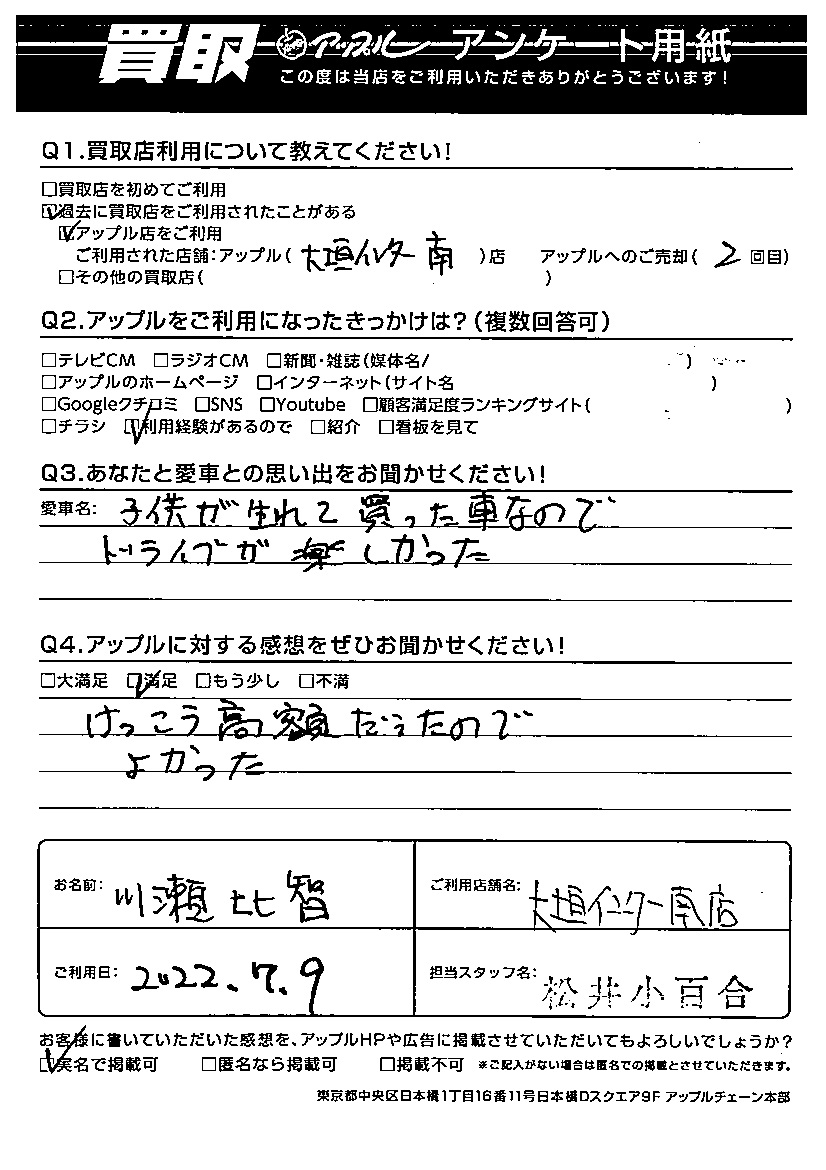 買取 アップル アンケート用紙
この度は当店をご利用いただきありがとうございます!
Q1.買取店利用について教えてください!
□買取店を初めてご利用
☑過去に買取店をご利用されたことがある
☑アップル店をご利用
ご利用された店舗:アップル(大垣インター南)店 アップルへのご売却(2回目)
□その他の買取店( )
Q2.アップルをご利用になったきっかけは?(複数回答可)
□テレビCM □ラジオCM □新聞・雑誌(媒体名/ )
□アップルのホームページ □インターネット(サイト名 )
□Googleクチコミ □SNS □Youtube □顧客満足度ランキングサイト( )
□チラシ ☑利用経験があるので □紹介 □看板を見て
Q3.あなたと愛車との思い出をお聞かせください!
愛車名: 子供が生れて買った車なので
ドライブが楽しかった
Q4.アップルに対する感想をぜひお聞かせください!
□大満足 ☑満足 □もう少し □不満
けっこう高額だったので
よかった
お名前: 川瀬比智 ご利用店舗名: 大垣インター南店
ご利用日: 2022.7.9 担当スタッフ名: 松井小百合
お客様に書いていただいた感想を、アップルHPや広告に掲載させていただいてもよろしいでしょうか?
☑実名で掲載可 □匿名なら掲載可 □掲載不可 ※ご記入がない場合は匿名での掲載とさせていただきます。
東京都中央区日本橋1丁目16番11号日本橋Dスクエア9F アップルチェーン本部